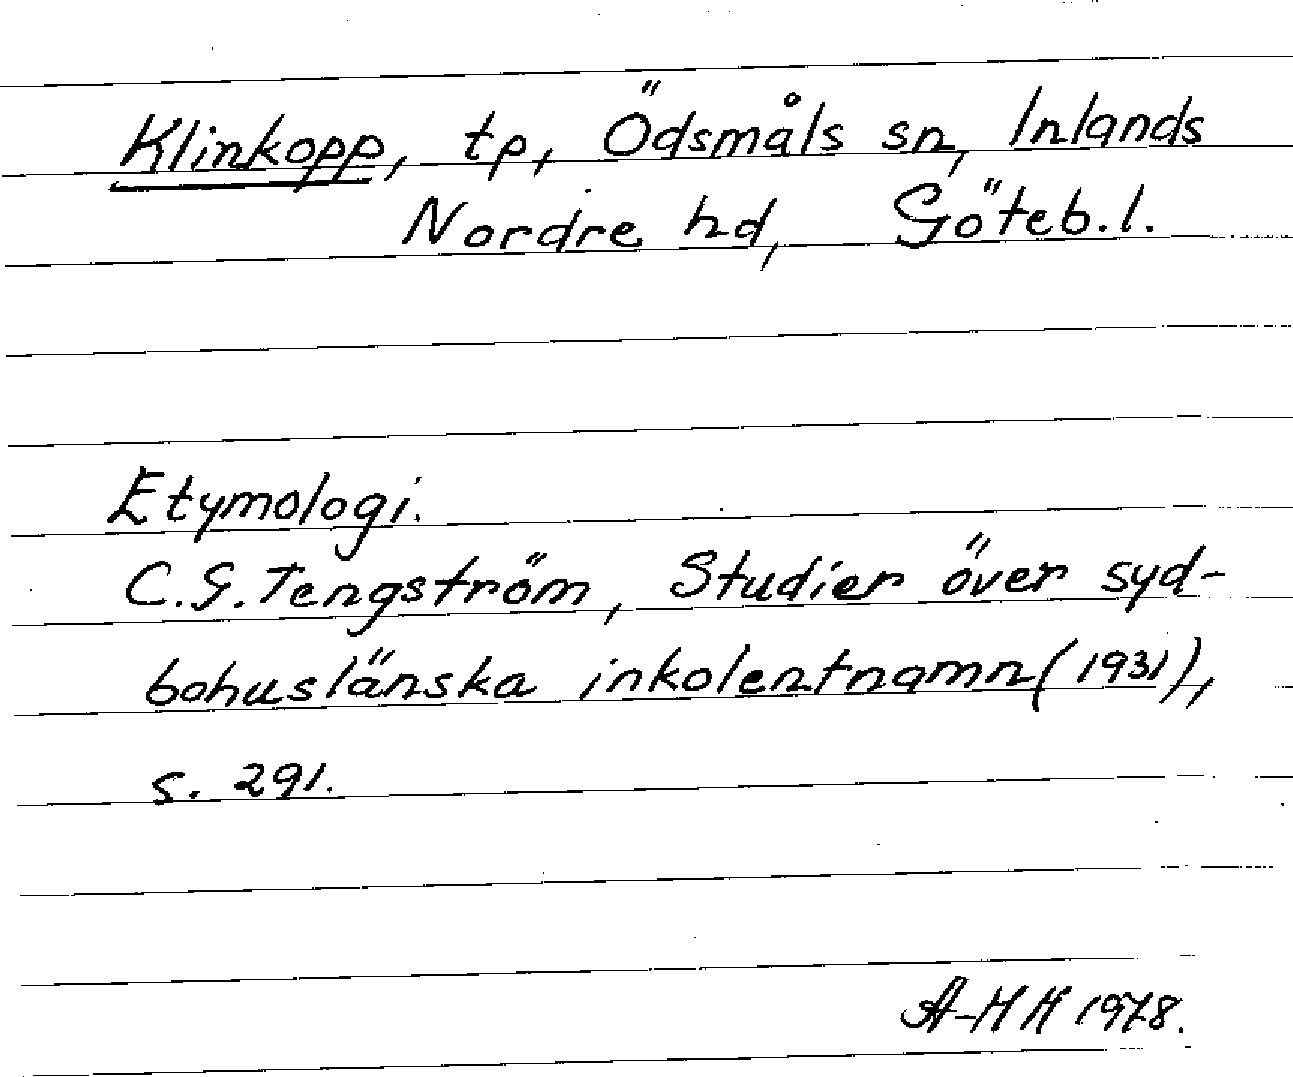 Klinkopp, tp, Ödsmåls sn, Inlands
Nordre hd, Göteb.l.
Etymologi.
C.G. Tengström, Studier över syd-
bohuslänska inkolentnamn (1931),
s. 291.
A-HH 1978.